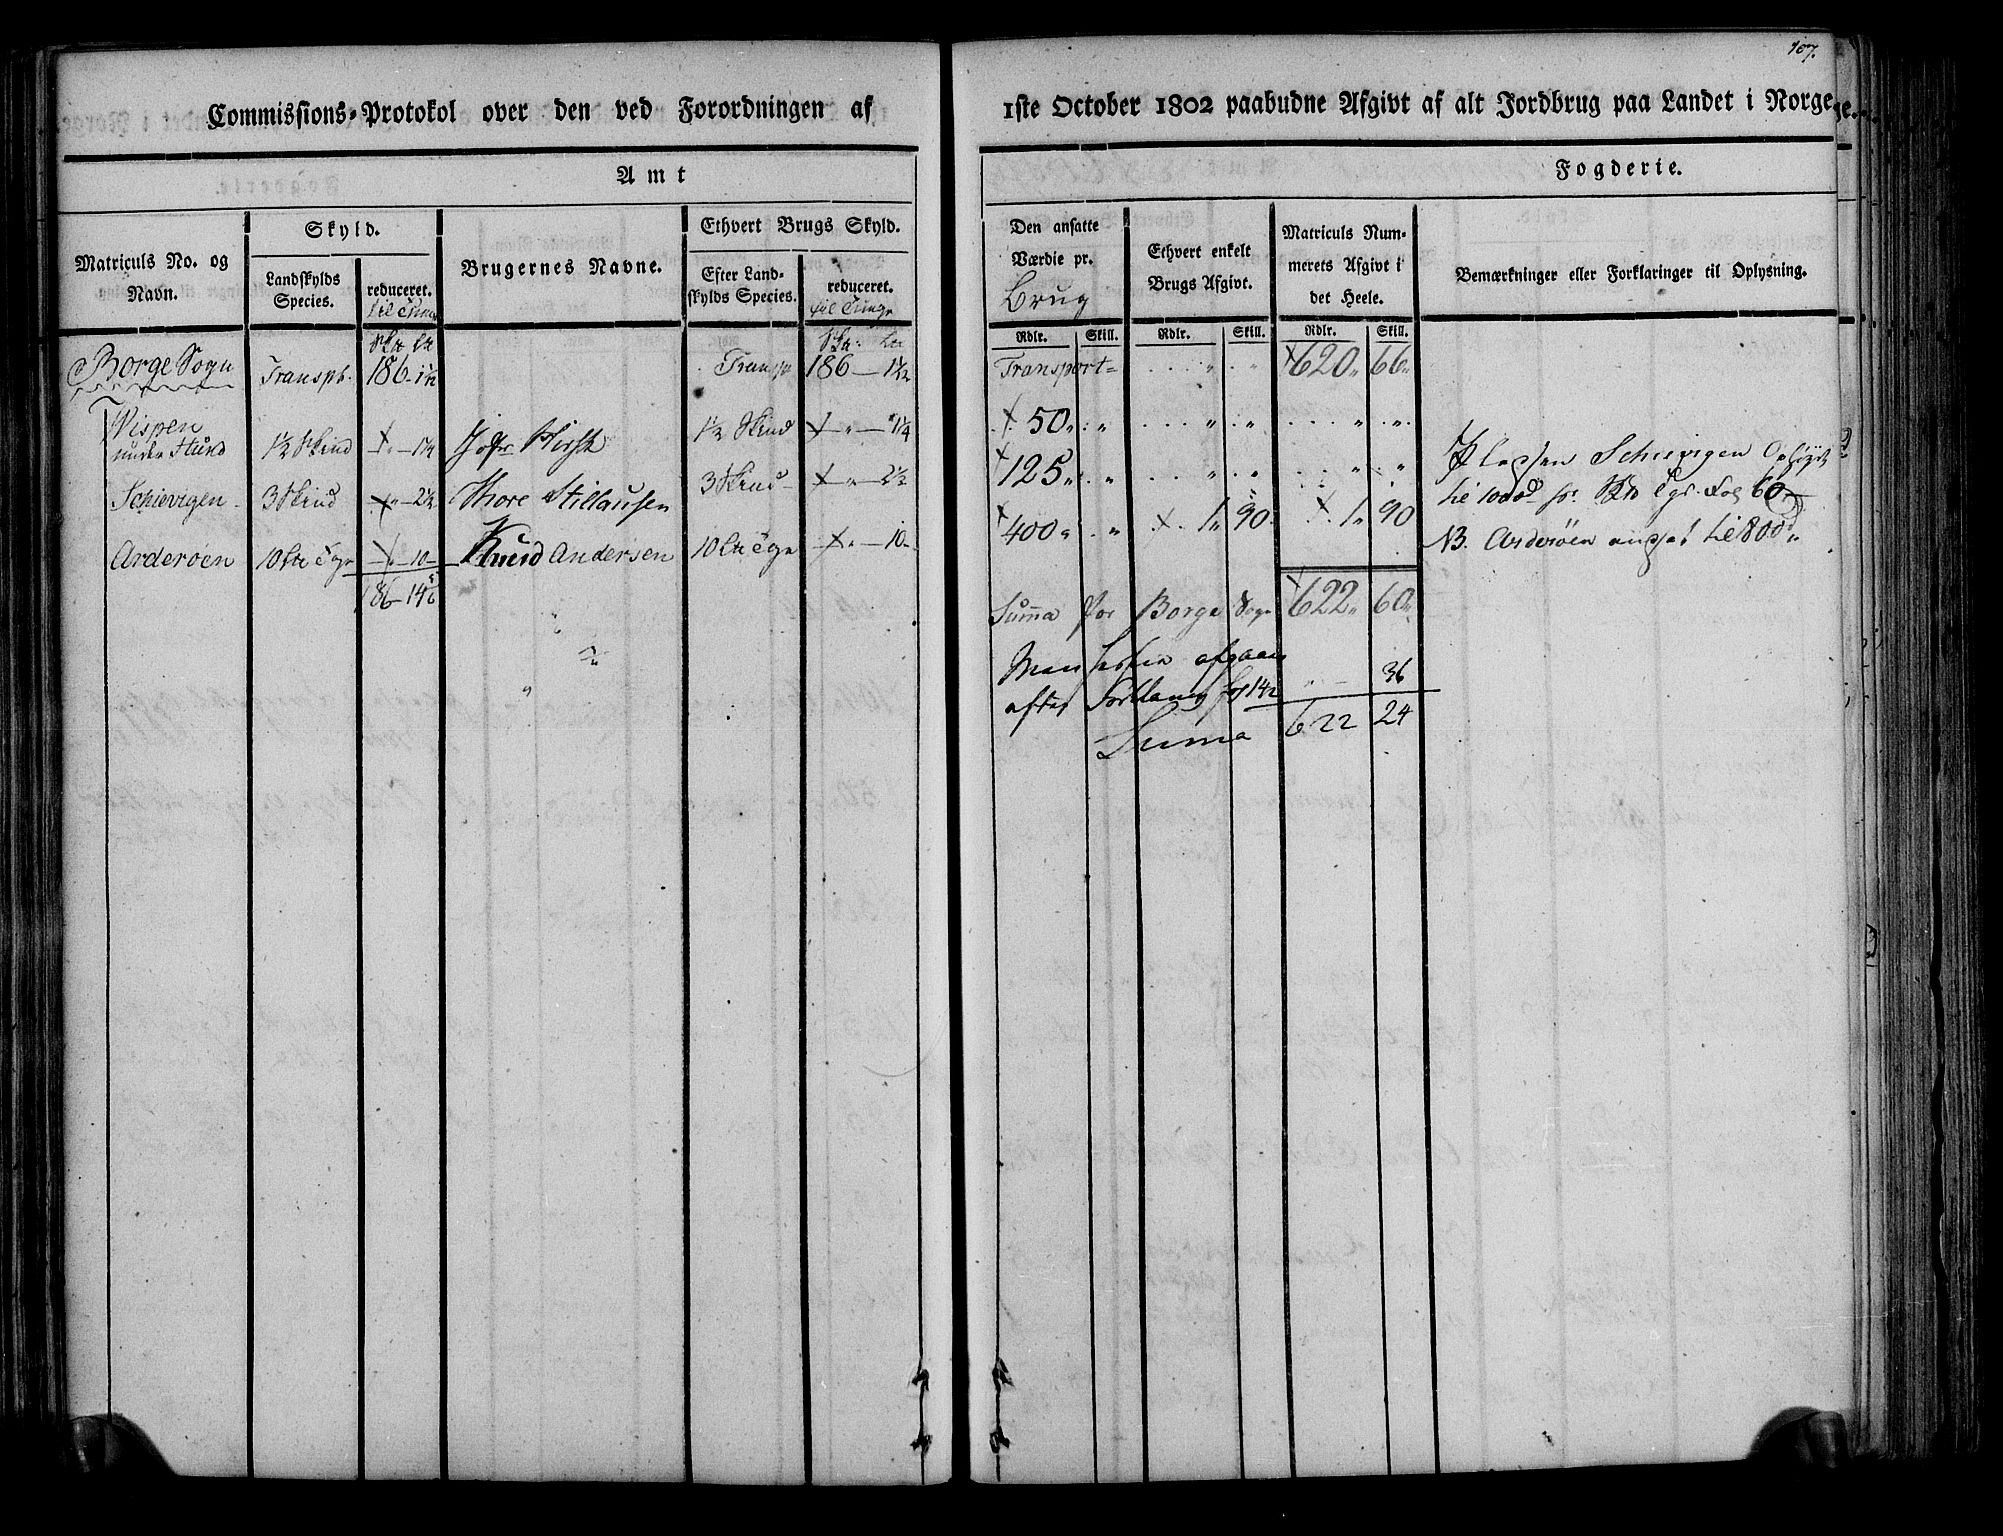 107.
Commissions-Protokol over den ved Forordningen af 1ste October 1802 paabudne Afgivt af alt Jordbrug paa Landet i Norge.
Amt
Fogderie.
Matriculs No. og Navn.
Skyld.
Landskylds Species.
reduceret.
til Tunge
Brugernes Navne.
Ethvert Brugs Skyld.
Efter Landskylds Species.
reduceret.
til Tunge
Den ansatte Værdie pr.
Brug
Ethvert enkelt Brugs Afgivt.
Matriculs Nummerets Afgivt i det Heele.
Bemærkninger eller Forklaringer til Oplysning.
Rdlr. Skill. Rdlr. Skill. Rdlr. Skill.
Borge Sogn Transpt. 186 - 1½ Transp 186 - 1½ Transport 620 66
Wispen under Hund 1½ Skind 1¼ 1½ Skind 1¼ 50
Schievigen 3 Skind 2½ Thore Stillaugsen 3 Skind 2½ 125
Arderöen 10 10 Knud Andersen 10 10 400 1 90 1 90
186 - 14
Pladsen Schievigen
til 1000 60
NB. Arderöen ansat til 800
Summa for Borge Sogn 622 60
Men afgaaer 36
after
Summa 622 24